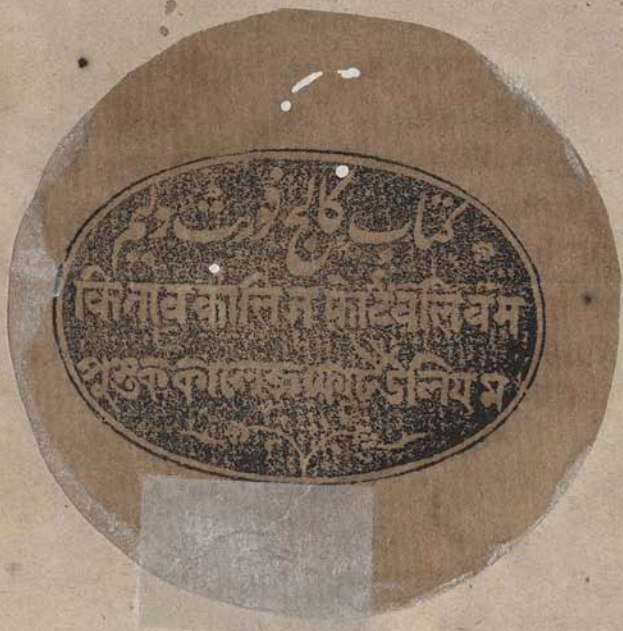 کتاب کالج فورث ولیم
किताव कालिज फोर्ट वलियम
পুস্তক কালেজ ফোর্ট উলিয়ম